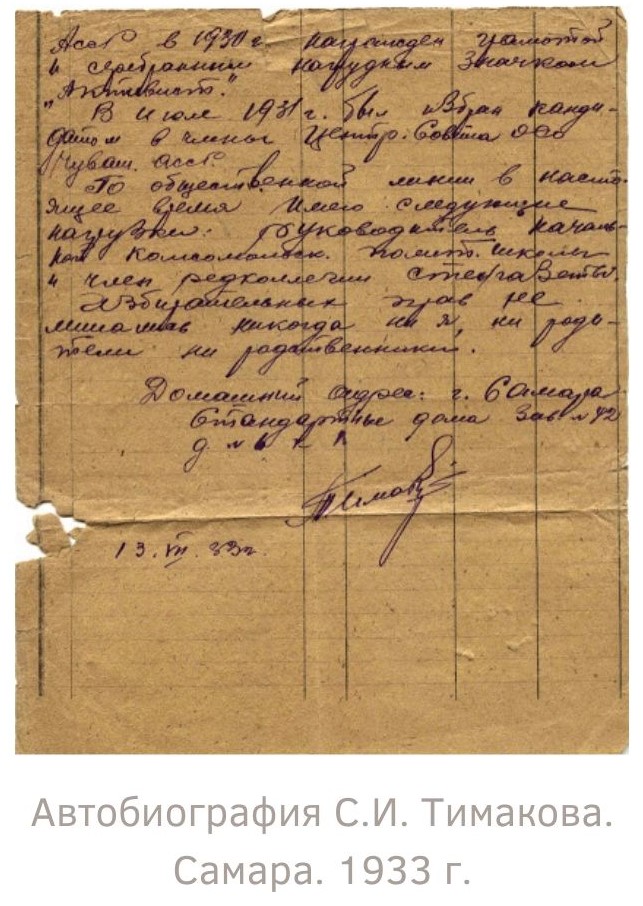 АссР в 1930 г. награжден грамотой
и серебрянным нагрудным значком
"Активист."
В июле 1931 г. был избран канди-
датом в члены Центр. Совета ОАО
Чуваш. АССР.
По общественной линии в насто-
ящее время имею следующие
нагрузки: Руководитель началь-
ной комсомольск. полит. школы
и член редколлегии стенгазеты.
Избирательных прав не
лишались никогда ни я, ни роди-
тели ни родственники.
Домашний адрес: г. Самара
Стандартные дома Зав № 42
д. № 6 к 1
Тимаков
13. III. 33 г.
Автобиография С.И. Тимакова.
Самара. 1933 г.